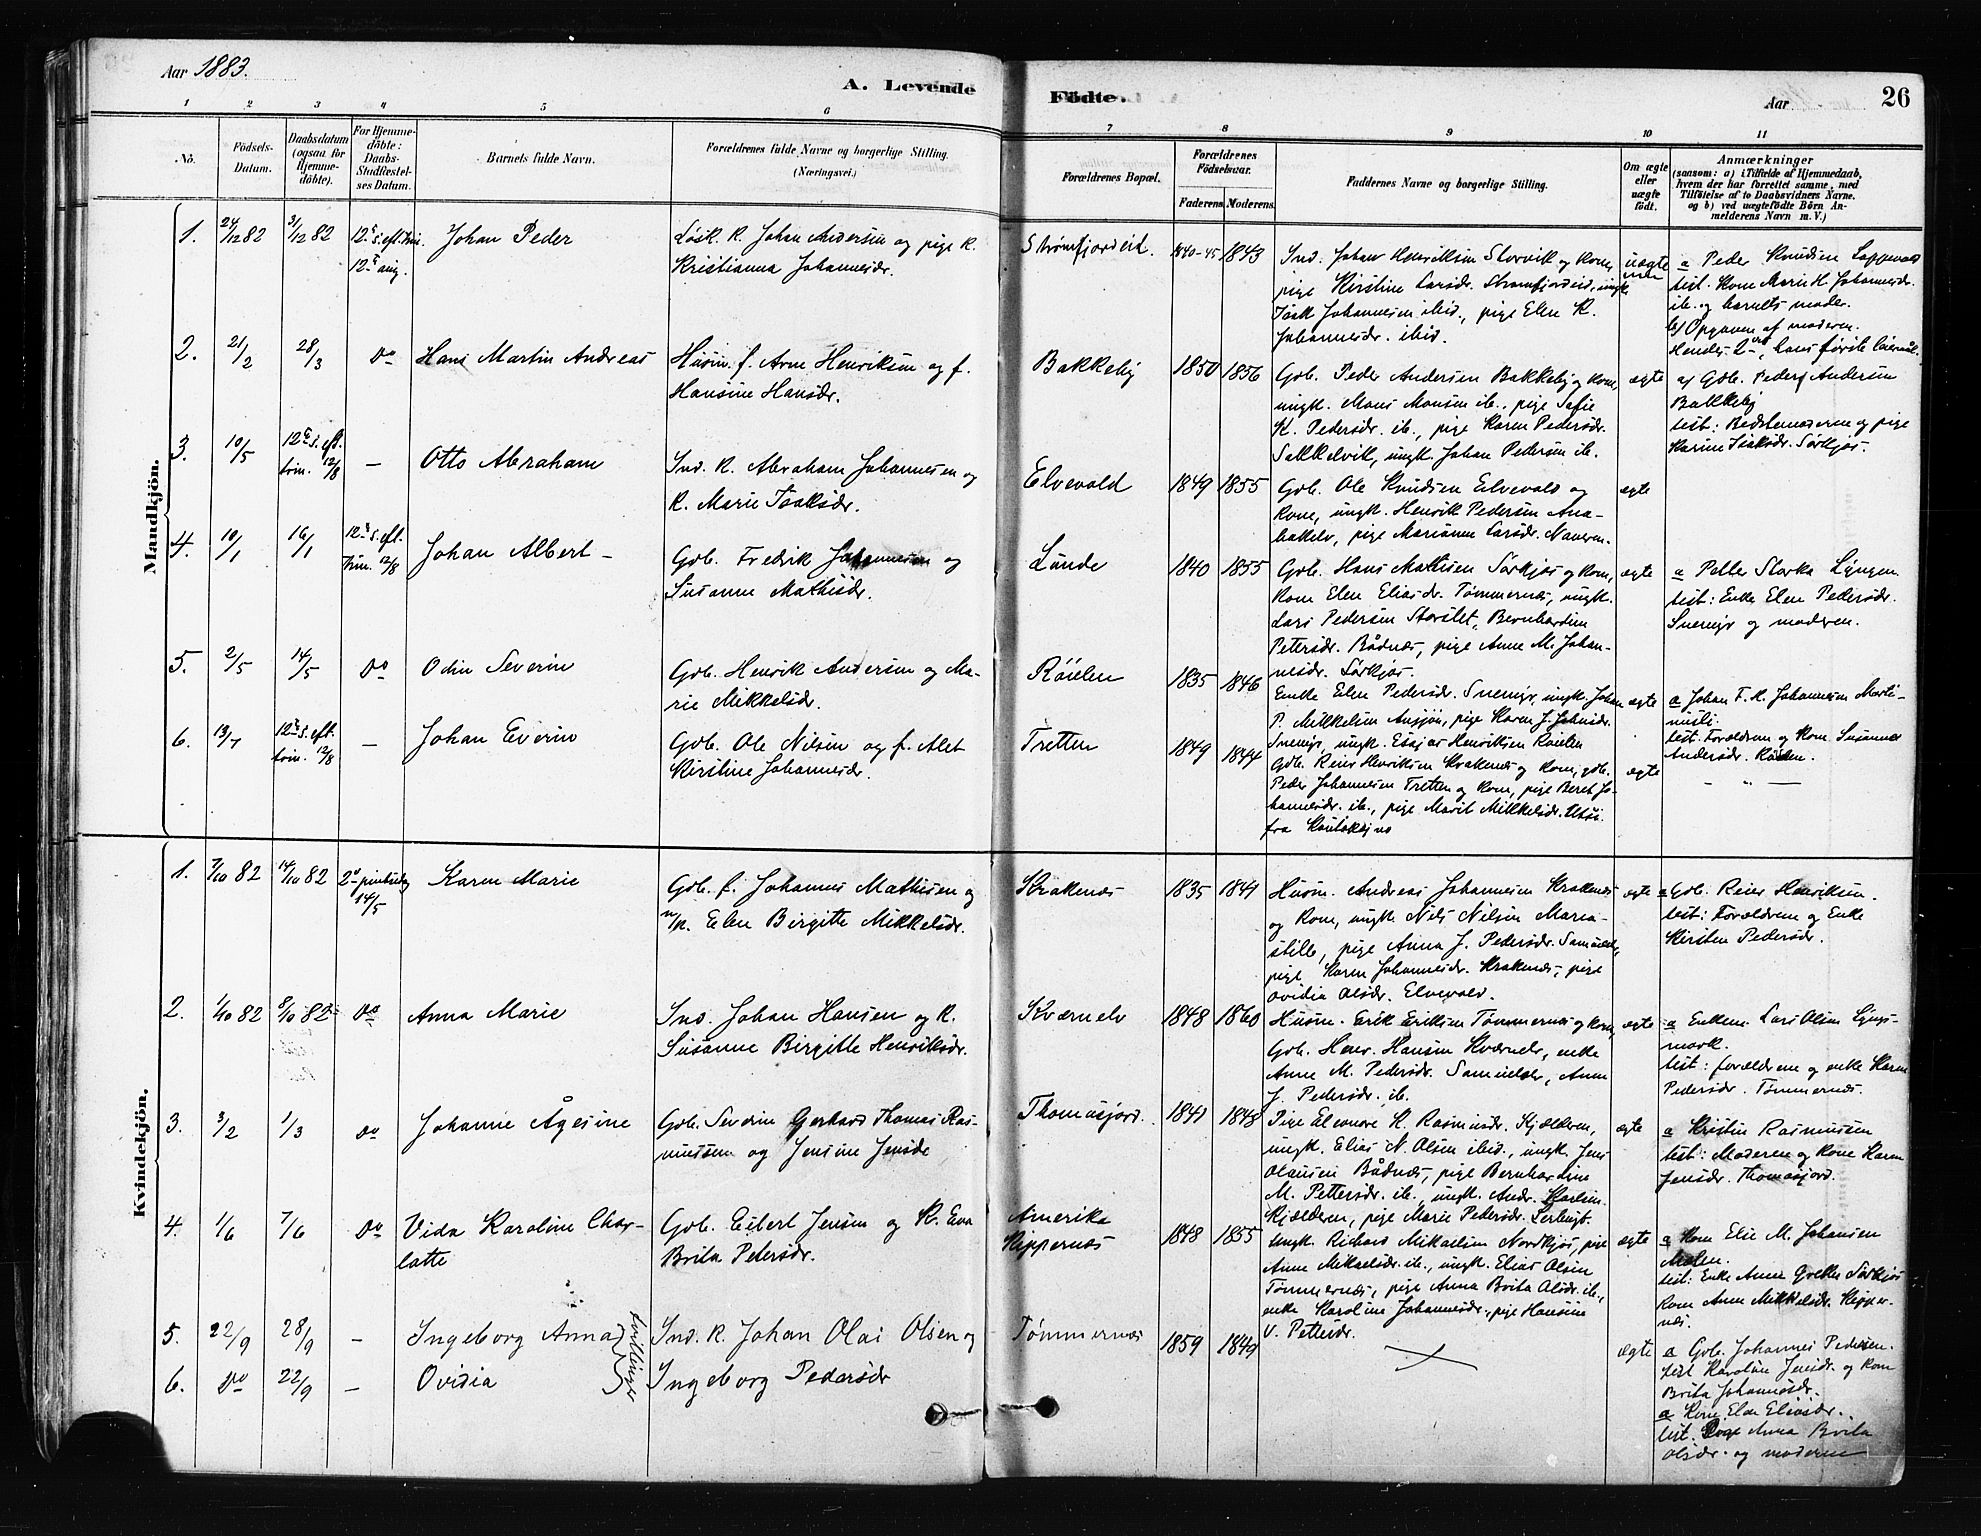 Aar 1883.
A. Levende
Födte.
Aar
26
1 2 3 4 5 6 7 8 9 10 11
No.
Födsels-
Datum.
Daabsdatum
(ogsaa for
Hjemme-
döbte).
For Hjemme-
döbte:
Daabs-
Stadfæstel-
ses Datum.
Barnets fulde Navn.
Forældrenes fulde Navne og borgerlige Stilling.
(Næringsvei.)
Forældrenes Bopæl.
Forældrenes
Födselsaar.
Faderens. Moderens.
Faddernes Navne og borgerlige Stilling.
Om ægte
eller
uægte
födt.
Anmærkninger
(saasom: a) i Tilfælde af Hjemmedaab,
hvem der har forrettet samme, med
Tilföielse af to Daabsvidners Navne,
og b) ved uægtefödte Börn An-
melderens Navn m. V.)
Mandkjön.
1. 24/12 82 3/12 82 12te s. eft. trin.
12te aug.
Johan Peder
Løsk. K. Johan Andersen og pige K.
Kristianna Johannesdr.
Strømfjordeid. 1840-45 1843
Ind. Johan Henriksen Storvik og kone,
pige Kirstine Larsdr. Strømfjordeid, ungk.
Isak Johannesen ibid., pige Elen K.
Johannesdr. ibid.
uægte
a Peder Knudsen
test. Kone Marie K. Johannesdr.
ib. og barnets moder.
b) Opgaven af moderen.
Hendes 2det, hans første leiermål.
2. 21/2 28/3 Do Hans Martin Andreas
Husm. f. Arne Henriksen og f.
Hansine Hansdr.
Bakkeby 1850 1856
Gbr. Peder Andersen Bakkeby og kone,
ungk. Mons Monsen ib., pige Sofie
K. Pedersdr. ib., pige Karen Pedersdr.
Sakkelvik, ungk. Johan Pedersen ib.
ægte
a) Gbr. Peder Andersen
Bakkeby
test: Bedstemoderen og pige
Karine Isaksdr. Sørkjos.
3. 10/5 12te s. eft.
trin. 12/8 — Otto Abraham
Ind. K. Abraham Johannesen og
K. Marie Isaksdr.
Elvevold 1849 1855
Gbr. Ole Knudsen Elvevold og
kone, ungk. Henrik Pedersen Ana-
bakelv, pige Marianne Larsdr. Naveren.
ægte
4. 10/1 16/1 12te s. eft.
trin. 12/8
Johan Albert –
Gbr. Fredrik Johannesen og
Susanne Mathisdr.
Lunde 1840 1855
Gbr. Hans Mathisen Sørkjos og kone,
kone Elen Eliasdr. Tømmernes, ungk.
Lars Pedersen Storslet, Bernhardine
Petersdr. Bådnes, pige Anne M. Johan-
nesdr. Sørkjos.
ægte
a Petter Storka Lyngen.
test: Enke Elen Pedersdr.
Snemyr og moderen.
5. 2/5 14/5 Do Odin Severin
Gbr. Henrik Andersen og Ma-
rie Mikkelsdr.
Röielen 1835 1846
Enke Elen Pedersdr. Snemyr, ungk. Johan
P. Mikkelsen Ansjön, pige Karen J. Johnsdr.
Snemyr, ungk. Esajas Henriksen Röielen
ægte
a Johan F. K. Johannesen
test. Forældrene og kone Susanna
Andersdr. Röielen.
6. 13/7 12te s. eft.
trin. 12/8 — Johan Everin
Gbr. Ole Nilsen og f. Alet
Kirstine Johannesdr.
Tretten 1849 1844
Gbr. Reier Henriksen Krakenes og kone, gbr.
Peder Johannesen Tretten og kone, pige Beret Jo-
hannesdr. ib., pige Marit Mikkelsdr. Utsi
fra Koutokejno
ægte
— " —
Kvindekjön.
1. 7/10 82 14/10 82 2den pintsedag
14/5
Karen Marie
Gbr. f. Johannes Mathisen og
n/k. Elen Birgitte Mikkelsdr.
Krakenes 1835 1841
Husm. Andreas Johannesen Krakenes
og kone, ungk. Nils Nilsen Maria-
stilb, pige Anna J. Pedersdr. Samuelelv,
pige Karen Johannesdr. Krakenes, pige
Ovidia Olsdr. Elvevold.
ægte
a Gbr. Reier Henriksen.
test: Forældrene og Enke
Kirsten Pedersdr.
2. 1/10 82 8/10 82 Do Anna Marie
Ind. Johan Hansen og K.
Susanne Birgitte Henriksdr.
Kvernelv 1848 1860
Husm. Erik Eriksen Tømmernes og kone,
Gbr. Henr. Hansen Kvernelv, enke
Anne M. Pedersdr. Samuelelv, Anne
J. Pedersdr. ib.
ægte
a Enkem. Lars Olsen Lyngs-
mark.
test: forældrene og enke Karen
Pedersdr. Tømmernes.
3. 3/2 1/3 Do Johanne Ågesine
Gbr. Severin Gerhard Thomas Ras-
mussen og Jensine Jensdr
Thomasjord. 1841 1848
Pige Eleonore K. Rasmusdr. Kjælderen,
ungk. Elias N. Olsen ibid., ungk. Jens
Olausen Bådnes, pige Bernhardine
M. Pettersdr. ib., ungk. Andr. Karlsen
Kjælderen, pige Marie Pedersdr.
ægte
a Kristin Rasmussen
test: Moderen og kone Karen
Jensdr. Thomasjord.
4. 1/6 7/6 Do Vida Karoline Char-
lotte
Gbr. Eibert Jensen og K. Eva
Brita Petersdr.
Amerika
Kippernes 1848 1855
Ungk. Richard Mikaelsen Nordkjos, pige
Anne Mikaelsdr. ib., ungk. Elias Olsen
Tømmernes, pige Anna Brita Olsdr. ib.,
enke Karoline Johannesdr., pige Hansine
V. Pettersdr.
ægte
a Kone Elie M. Johansen
test: Enke Anne Grethe Sørkjos
Kone Anne Mikkelsdr. Kipper-
nes.
5. 22/9 28/9 — Ingeborg Anna
tvillinger
Ind. K. Johan Olai Olsen og
Ingeborg Pedersdr
Tømmernes 1859 1849
ægte
a Gbr. Johannes Pedersen.
test Karoline Jensdr. og kone
Brita Johannesdr.
6. Do 22/9 — Ovidia
a Kone Elen Eliasdr.
test. Pige Anna Brita
Olsdr. og moderen